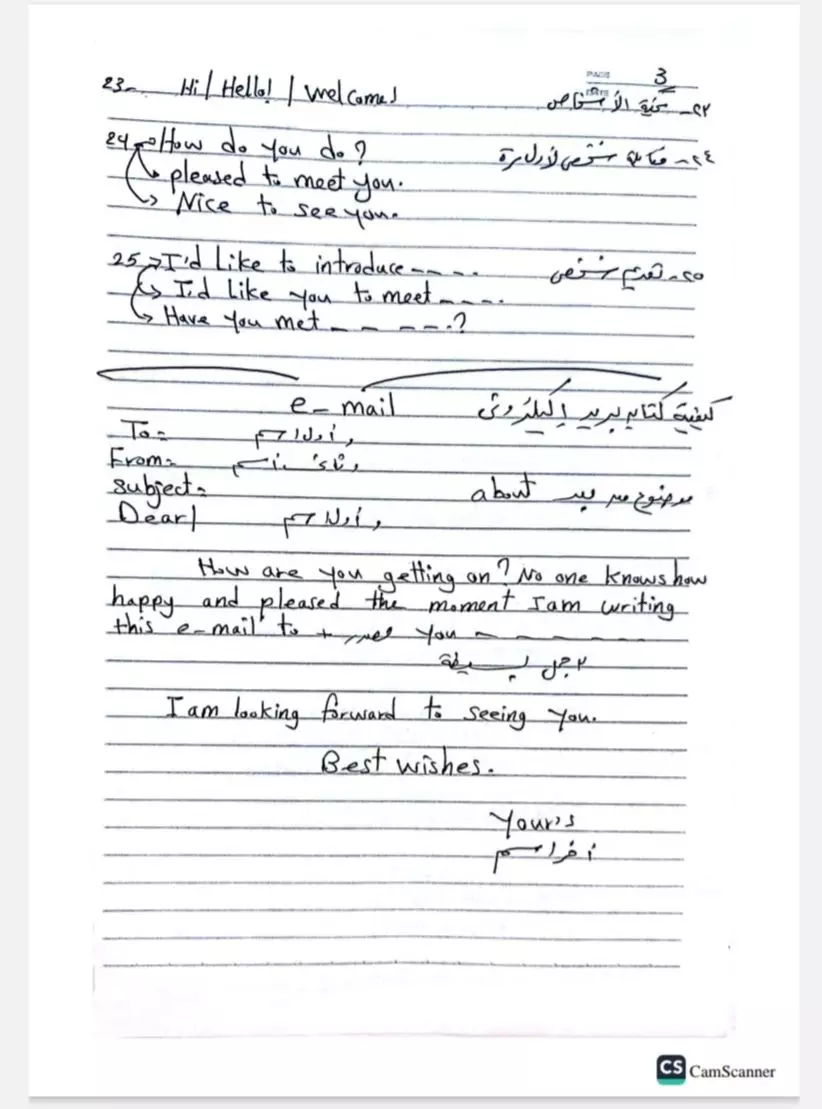 PAGE 3
DATE
23- Hi / Hello! / Welcome! ٢٣- تحية الأشخاص
24 → How do you do? ٢٤- مقابلة شخص لأول مرة
↳ pleased to meet you.
↳ Nice to see you.
25 → I'd like to introduce ----. ٢٥- تقديم شخص
↳ I'd like you to meet ----.
↳ Have you met -----.?
e-mail كيفية كتابة بريد إليكتروني
To: أول اسم
From: ثاني اسم
Subject: about موضوع
Dear / أول اسم
How are you getting on? No one knows how
happy and pleased the moment I am writing
this e-mail to + you - - - - -
جمل بسيطة
I am looking forward to seeing you.
Best wishes.
Your's
أخر اسم
CS CamScanner